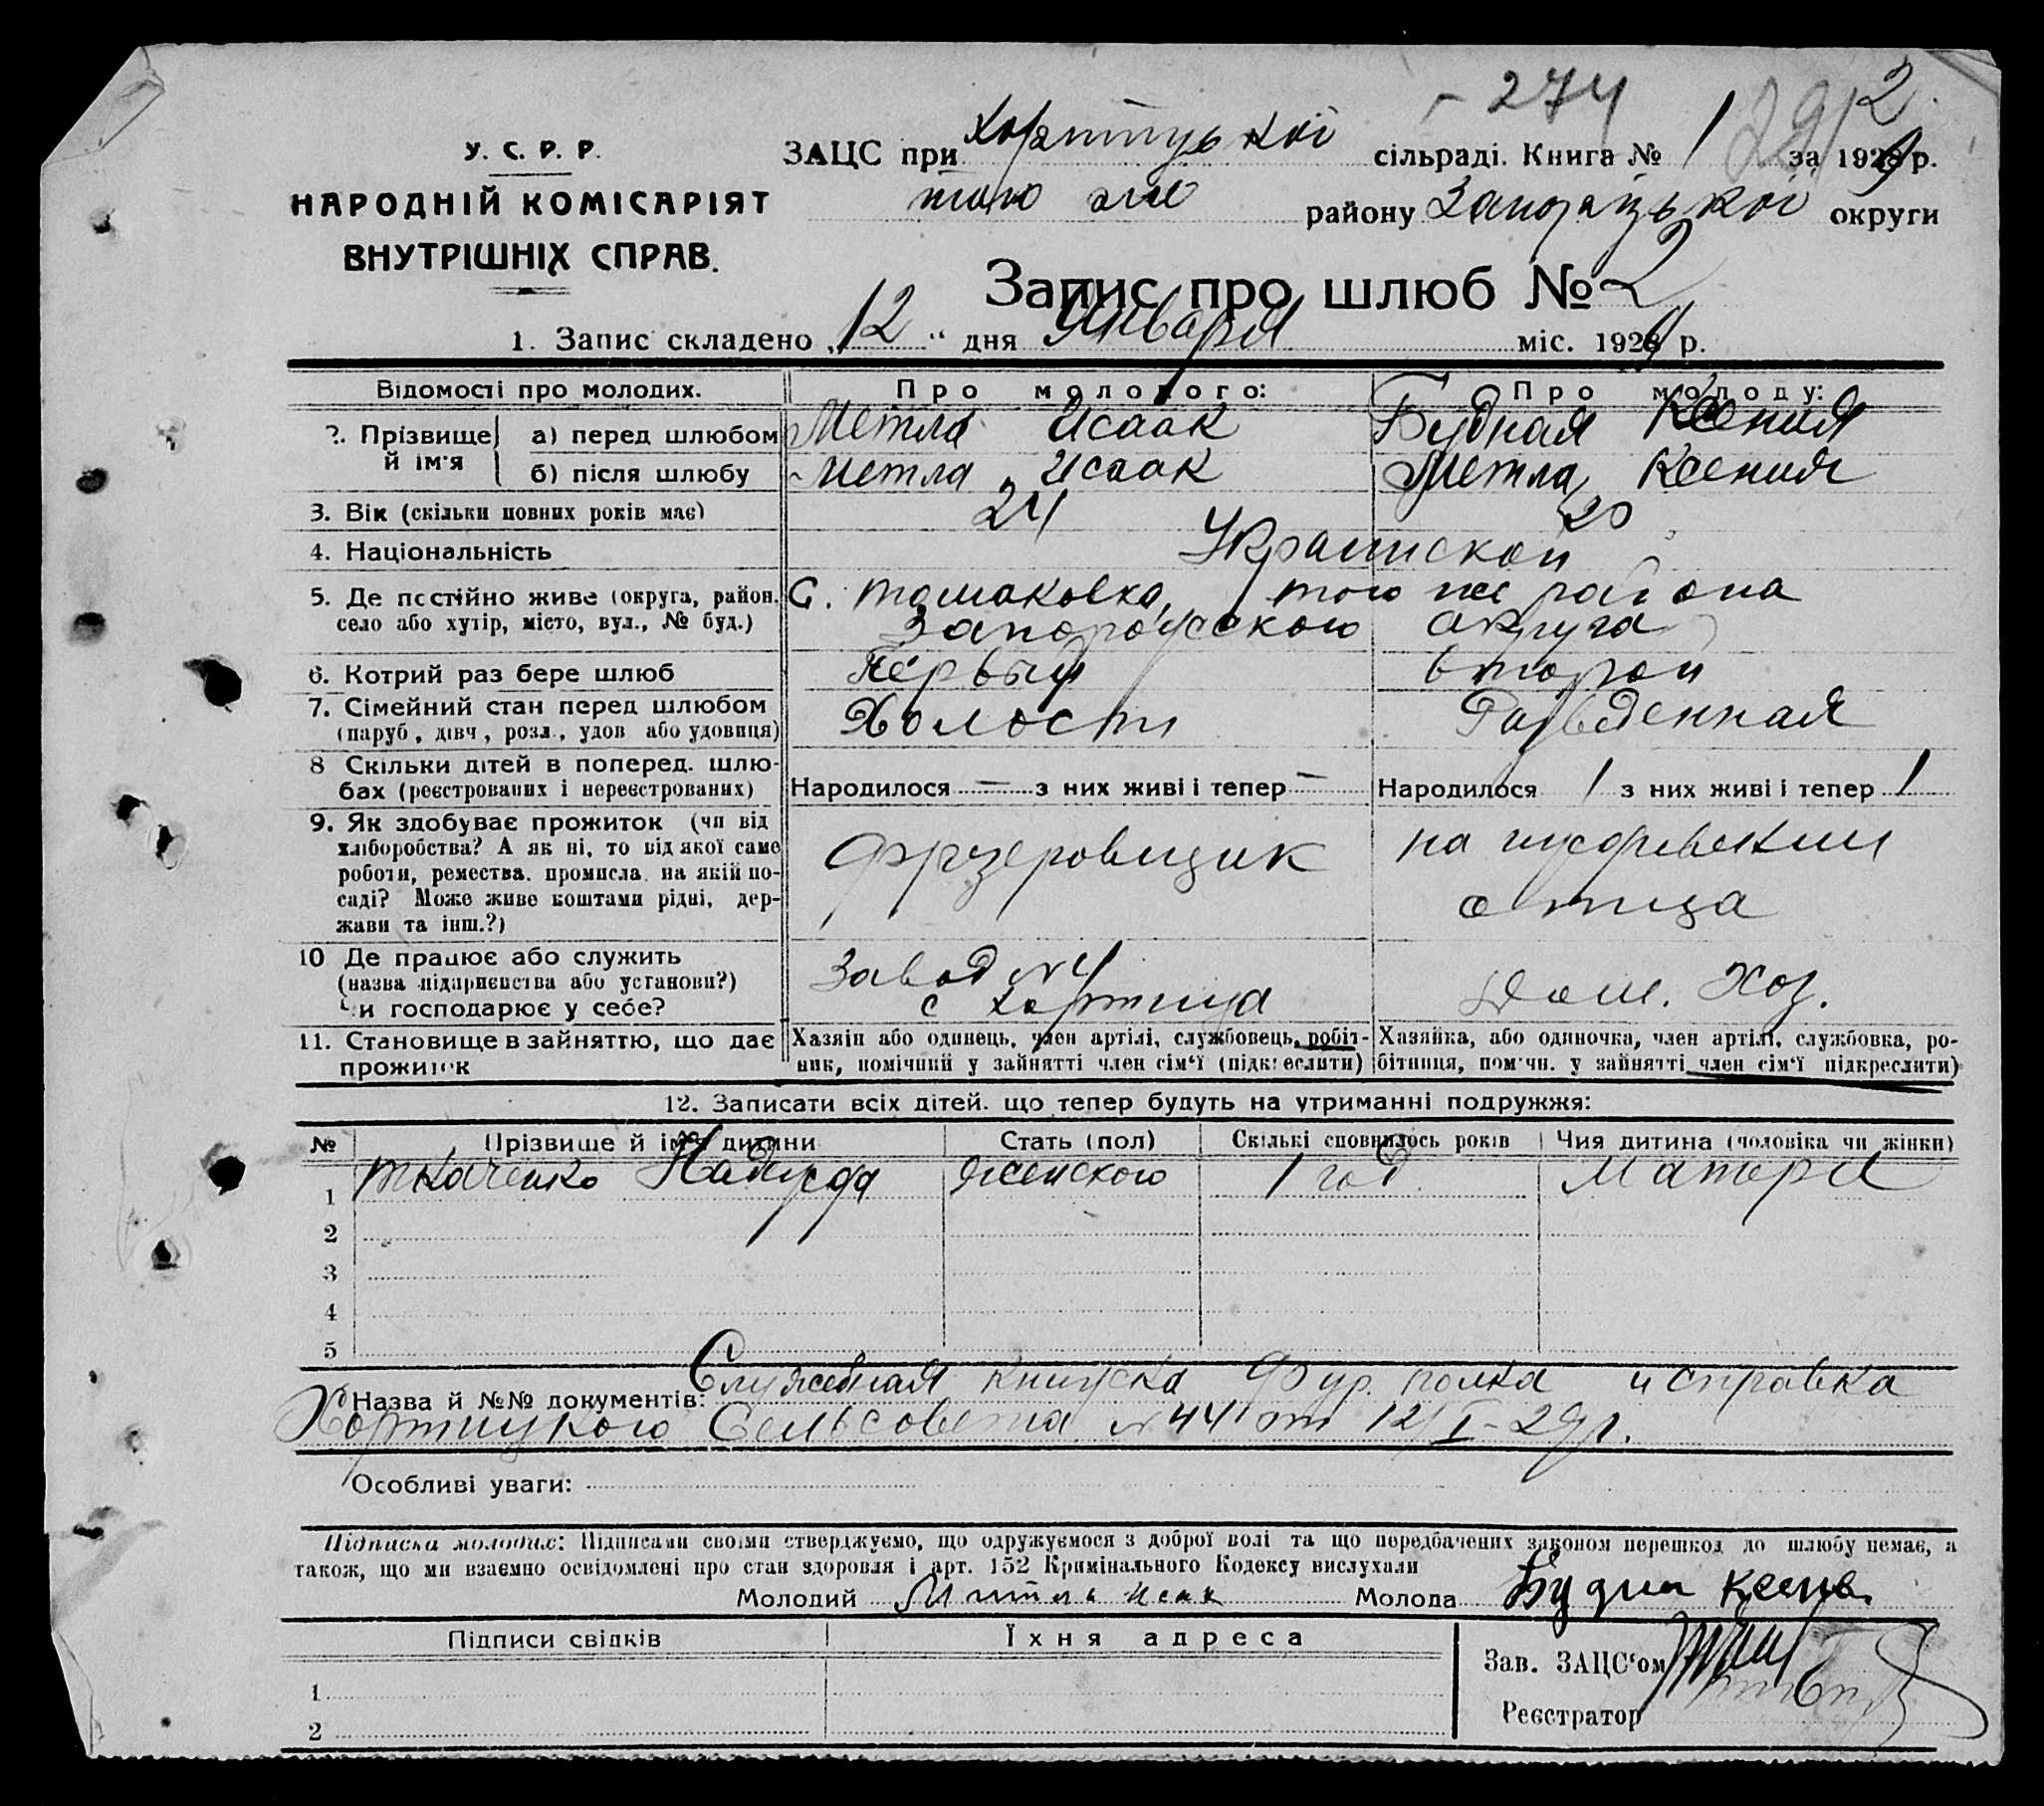 - 274
292
У. С. Р. Р.
НАРОДНІЙ КОМІСАРІЯТ
ВНУТРІШНІХ СПРАВ.
ЗАЦС при Хортицької сільраді. Книга № 1 за 1929 р.
того же району Запорізької округи
Запис про шлюб № 2
1. Запис складено „12“ дня Января міс. 1929 р.
Відомості про молодих. Про молодого: Про молоду:
2. Прізвище й ім'я а) перед шлюбом Метла Исаак Будная Ксения
б) після шлюбу Метла Исаак Метла Ксения
3. Вік (скільки повних років має) 24 20
4. Національність Украинской
5. Де постійно живе (округа, район, село або хутір, місто, вул., № буд.) С. Томаковка, того же района
Запорожского округа
6. Котрий раз бере шлюб Первый второй
7. Сімейний стан перед шлюбом (паруб., дівч., розл., удов. або удовиця) Холост Разведенная
8 Скільки дітей в поперед. шлюбах (реєстрованих і нереєстрованих) Народилося — з них живі і тепер — Народилося 1 з них живі і тепер 1
9. Як здобуває прожиток (чи від хліборобства? А як ні, то від якої саме роботи, ремества, промисла, на якій посаді? Може живе коштами рідні, держави та інш.?) Фрзеровщик на иждивении
отца
10 Де працює або служить (назва підприємства або установи?) Чи господарює у себе? Завод № 4
с Хортица Дом. Хоз.
11. Становище в зайняттю, що дає прожиток
Хазяїн або одинець, член артілі, службовець, робітник, помічний у зайнятті член сім'ї (підкреслити)
Хазяйка, або одиночка, член артілі, службовка, робітниця, помічн. у зайнятті член сім'ї підкреслити)
12. Записати всіх дітей, що тепер будуть на утриманні подружжя:
№ Прізвище й ім'я дитини Стать (пол) Скількі сповнилось років Чия дитина (чоловіка чи жінки)
1 Ткаченко Надежда Женского 1 год Матери
2
3
4
5
Назва й №№ документів: Служебная книжка Фур. полка и справка
Хортицкого Сельсовета № 44 от 12/I-29 г.
Особливі уваги:
Підписка молодих: Підписами своїми стверджуємо, що одружуємося з доброї волі та що передбачених законом перешкод до шлюбу немає, а
також, що ми взаємно освідомлені про стан здоровля і арт. 152 Кримінального Кодексу вислухали
Молодий Митла Исак Молода Будна Ксена
Підписи свідків Їхня адреса
Зав. ЗАЦС'ом
1
Реєстратор
2